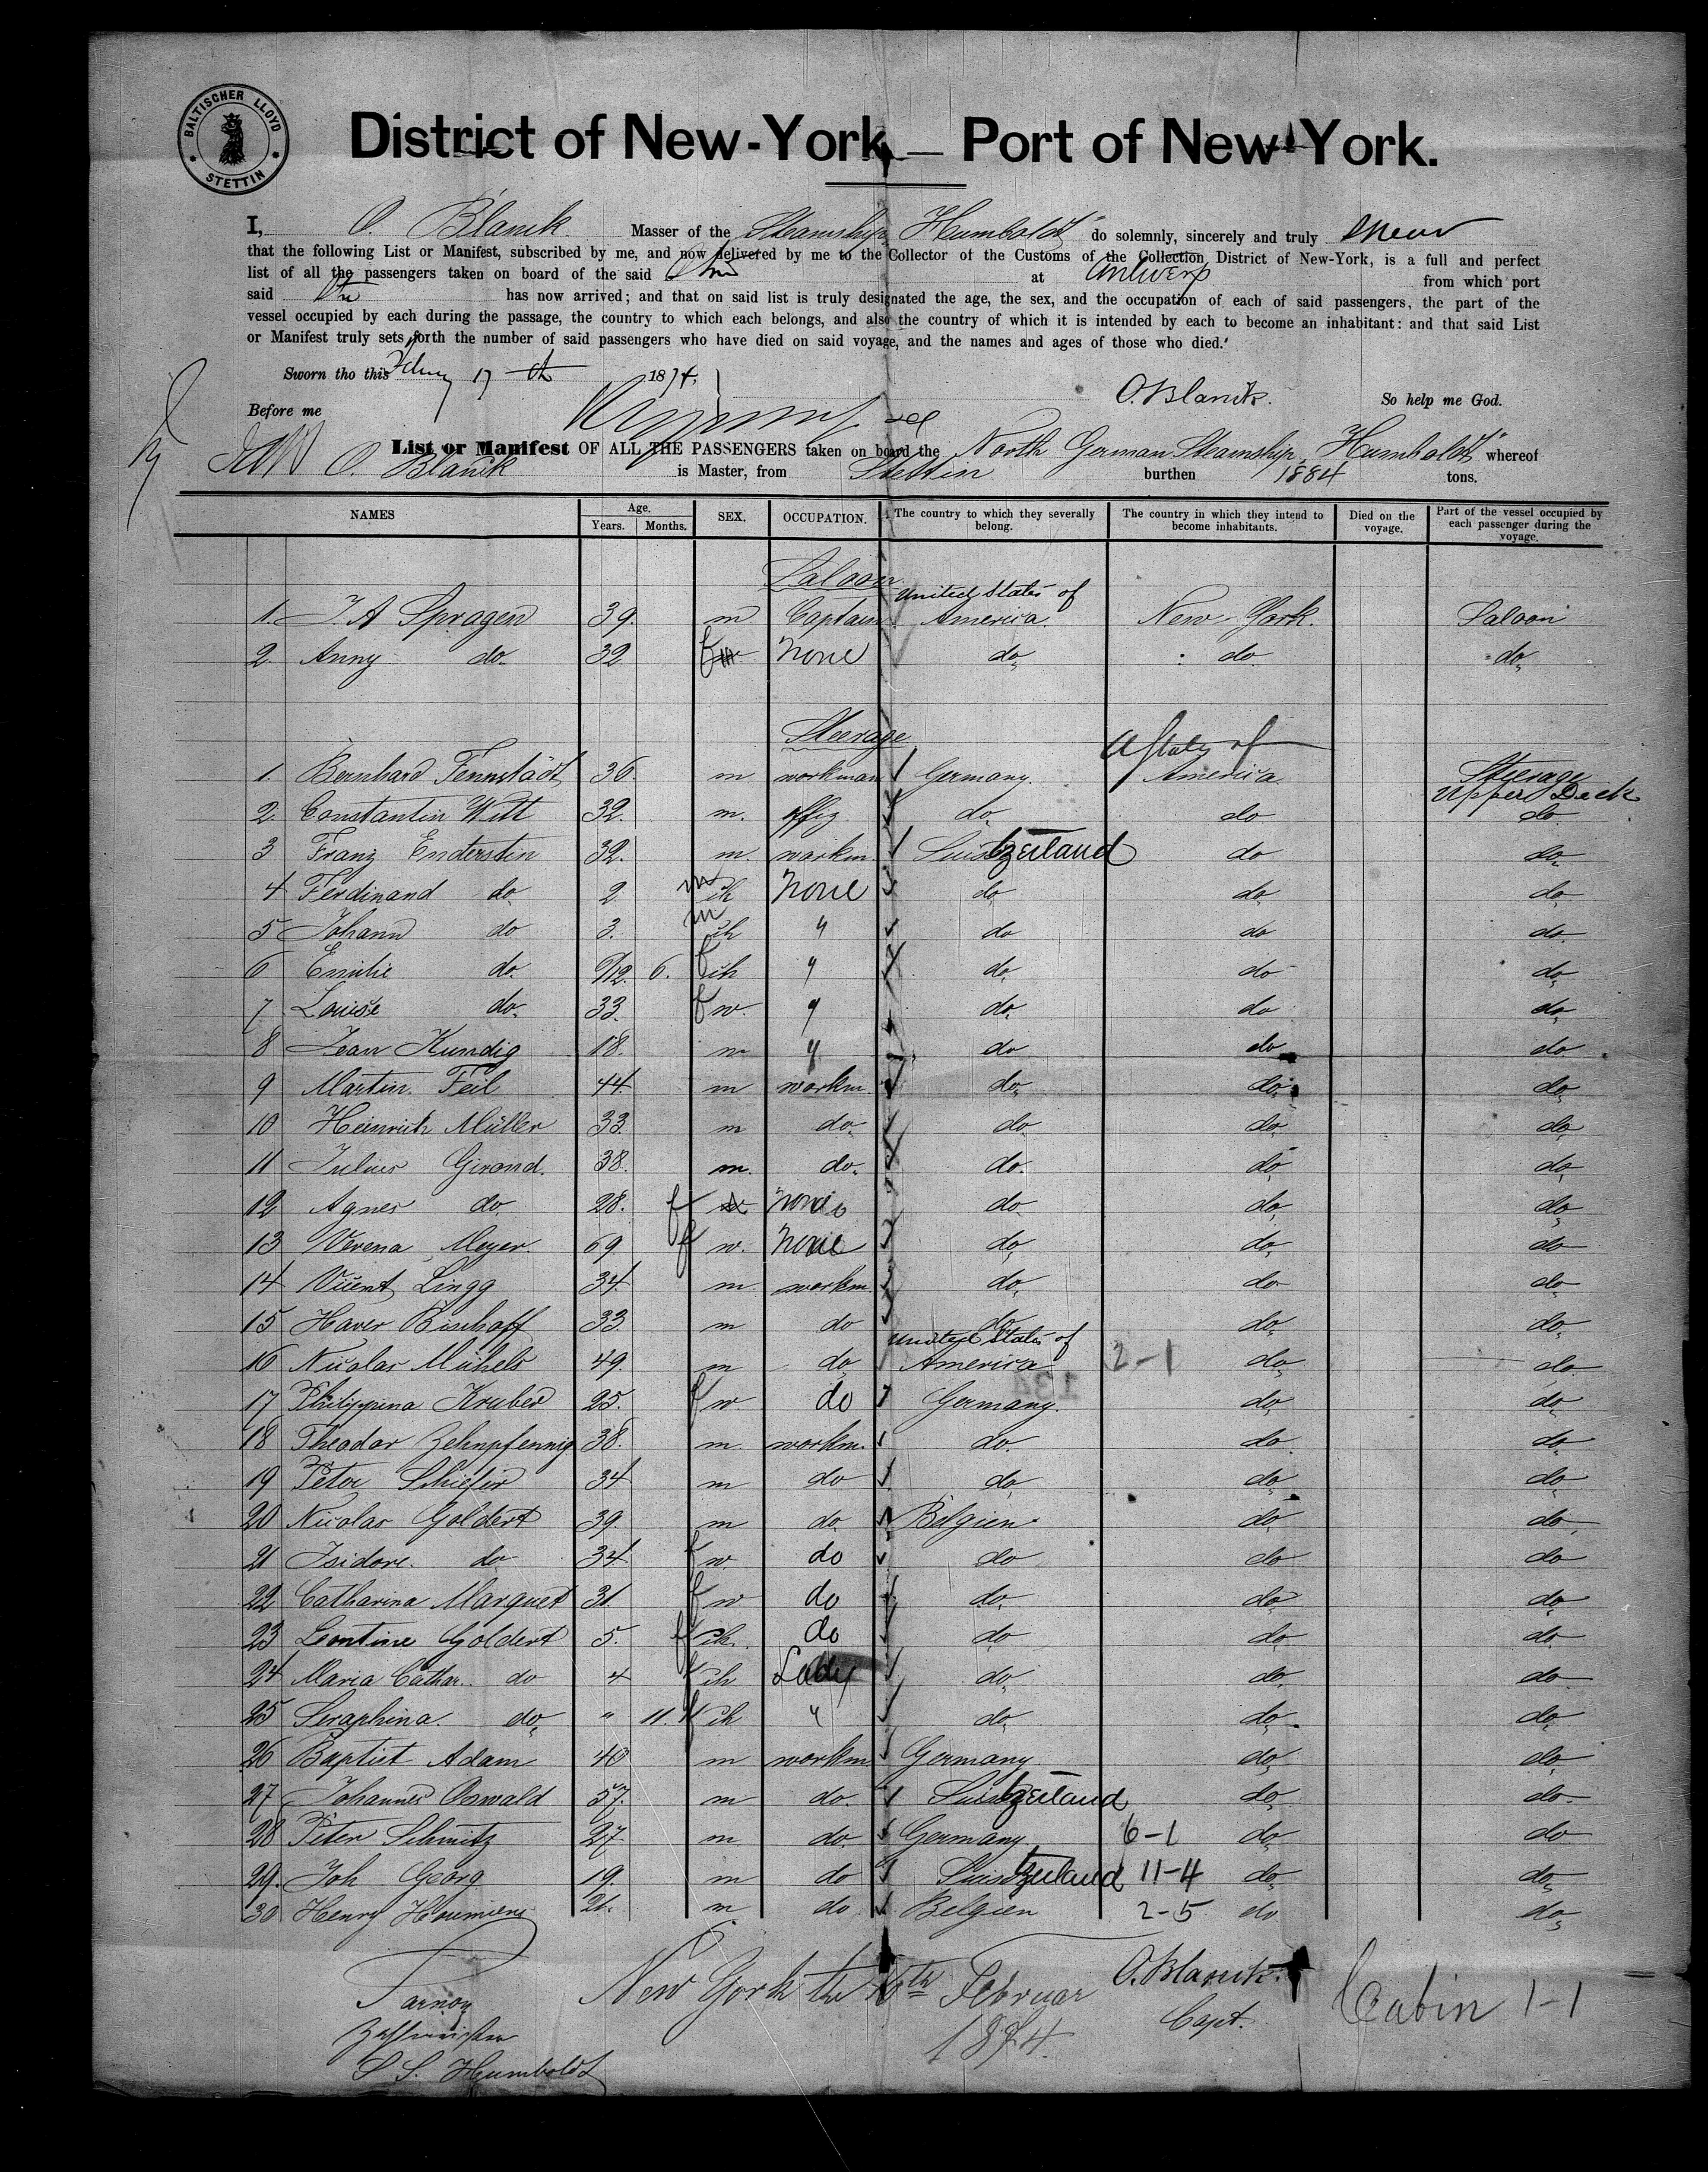 BALTISCHER LLOYD
STETTIN
District of New-York — Port of New-York.
I, O. Blanck Masser of the Steamship "Humboldt" do solemnly, sincerely and truly swear
that the following List or Manifest, subscribed by me, and now delivered by me to the Collector of the Customs of the Collection District of New-York, is a full and perfect
list of all the passengers taken on board of the said Ship at Antwerp from which port
said has now arrived; and that on said list is truly designated the age, the sex, and the occupation of each of said passengers, the part of the
vessel occupied by each during the passage, the country to which each belongs, and also the country of which it is intended by each to become an inhabitant: and that said List
or Manifest truly sets forth the number of said passengers who have died on said voyage, and the names and ages of those who died.
Sworn tho this 17 th 1874.
O. Blanck. So help me God.
Before me
List or Manifest OF ALL THE PASSENGERS taken on board the North German Steamship "Humboldt" whereof
O. Blanck is Master, from Stettin burthen 1884 tons.
NAMES Age. Years. Months. SEX. OCCUPATION. The country to which they severally belong. The country in which they intend to become inhabitants. Died on the voyage. Part of the vessel occupied by each passenger during the voyage.
Saloon
1. J. A Spragen 39. m Captain United States of America. New-York. Saloon
2. Anny do. 32 f none do do do
Steerage
1. Bernhard Tennstädt 36. m workman Germany. U States of America Steerage Upper Deck
2. Constantin Witt 32. m. do do do
3 Franz Enderstin 32. m. workm. Suistzerland do do
4 Ferdinand do 2 m ch none do do do
5 Johann do 3. m ch " do do do.
6 Emilie do. 6/12. 6. f ch " do do do
7 Louise do. 33. f w. " do. do do
8 Jean Kundig 18. m " do do do
9 Martin Feil 44. m workm. do do do
10 Heinrich Müller 33. m do do do do
11 Julius Girond. 38. m. do. do. do do
12 Agnes do 28. f none do do do
13 Verena Meyer. 69 f w. none do do do
14 Lingg 34. m workm. do. do do
15 Haver Bischoff 33. m do do do do
16 Nicolas Michels 49. m do United States of America 2-1 do do
17 Philippina Kruber 25. f w. do Germany. do do
18 Theodor Zehnpfennig 38. m. workm. do do do
19 Peter Schiefer 34 m do do do do
20 Nicolas Goldert 39. m do. Belgien do do
21 Isidore. do 34 f w. do do do do
22 Catharina Marquet 31. f w do do. do do
23 Leontine Goldert 5. f ch. do do do do
24 Maria Cathar. do 4 f ch Lady do do. do
25 Seraphina. do " 11. f ch " do do do
26 Baptist Adam 40 m workm Germany do do
27 Johannes Oswald 57. m do. Suistzerland do do
28 Peter Schmitz 27. m. do. Germany 6-1 do do
29. Joh Georg 19. m do Suistzerland 11-4 do do
30 Henry 21. m do Belgien 2-5 do do
New York the 16th Februar 1874
O. Blanck.
Capt.
Cabin 1-1
S S. Humboldt